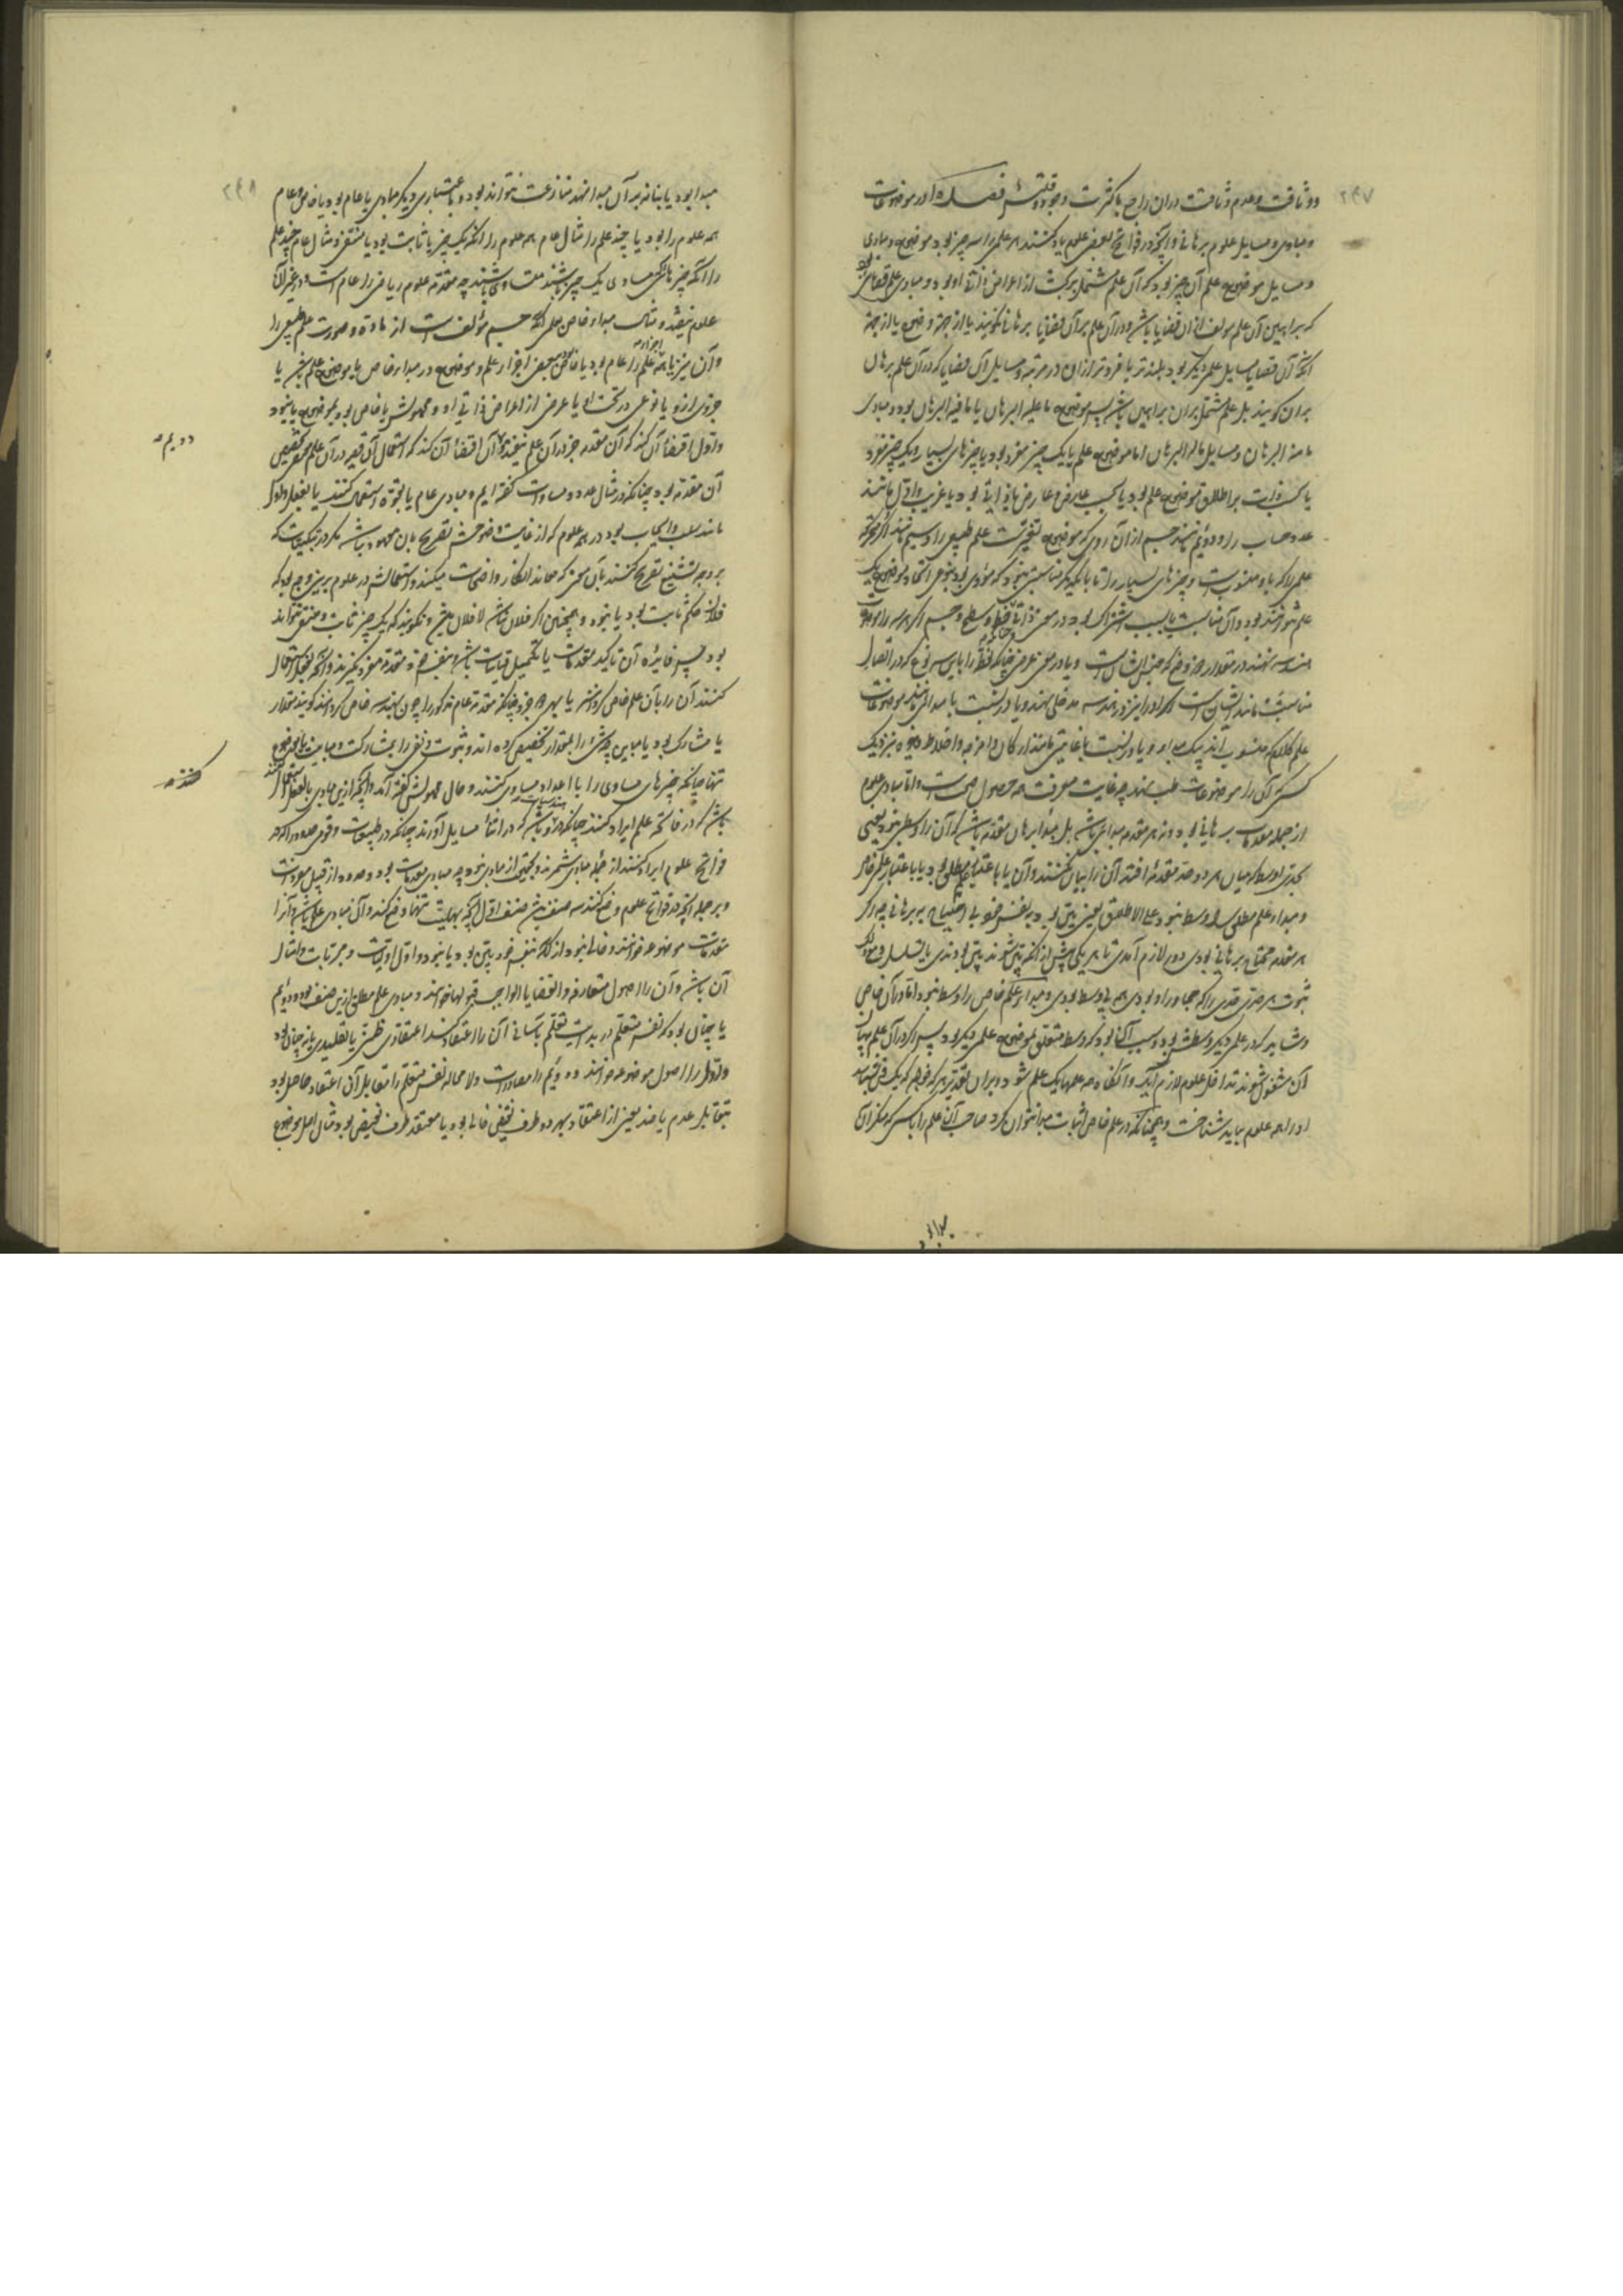 ۲۴۷
و وثاقت و عدم وثاقت در آن راجع با کثرت وجود و قلتش فصل در موضوعات
و مبادی و مسایل علوم برهانی و آنچه در فواتح بعضی علوم یاد کنند هر علمی را سه چیز بود موضوع و مبادی
و مسایل موضوع علم آن چیز بود که آن علم مشتمل بر بحث از اعراض ذاتی او بود و مبادی علم قضایای بود
که براهین آن علم مولف از آن قضایا باشد و در آن علم بر آن قضایا برهان نگویند یا از جهة وضوح یا از جهة
آنکه آن قضایا مسایل علمی دیگر بود بلندتر یا فروتر از آن در مرتبه و مسایل آن قضایا که در آن علم برهان
بر آن گویند بل علم مشتمل بر آن براهین باشد پس موضوع ما علیه البرهان یا ما فیه البرهان بود و مبادی
ما منه البرهان و مسایل ما له البرهان اما موضوع علم یا یک چیز مفرد بود یا چیزهای بسیار و یک چیز مفرد
یا بحسب ذات بر اطلاق موضوع علم بود یا بحسب عارضی و عارض یا ذاتی بود یا غریب و اول مانند
عدد حساب را و دوئم مانند جسم از آن روی که موضوع تغیرست علم طبیعی را و سیم مانند اکر متحرکه
علمی را که باو منسوبست و چیزهای بسیار را تا با یکدیگر مناسبتی نبود که مؤدی بود بنوعی اتحاد موضوع یک
علم نتواند بود و آن مناسبت یا بسبب اشتراک بود در معنی ذاتی چنانکه خط و سطح و جسم اگر هر سه را موضوع
هندسه نهند در مقدار جزوی که جنس ایشانست و یا در معنی عرضی چنانکه نقطه را با این سه نوع که در اتصال
مناسبت مانند ایشان است اگر او را نیز در هندسه مدخلی نهند و یا در نسبت با مبدائی مانند موضوعات
علم کلام که منسوب اند بیک مبداء و یا در نسبت با غایتی مانند ارکان و امزجه و اخلاط و غیره نزدیک
کسی که آن را موضوعات طب نهد چه غایت معرفت همه حصول صحت است و اما مبادی علوم
از جمله مقدمات برهانی بود و نه هر مقدمه مبدائی باشد بل مبدأ برهان مقدمه باشد که آن را وسطی نبود یعنی
بحدی اوسط که میان هر دو حد مقدمه افتد آن را بیان نکنند و آن یا باعتبار علم مطلق بود یا باعتبار علمی خاص
و مبداء علم مطلق را وسط نبود علی الاطلاق یعنی بین بود بنفس خود بی احتیاج به برهانی چه اگر
هر مقدمه محتاج برهانی بودی دور لازم آمدی تا هر یکی پیش از آنکه بین شوند بین بودندی یا تسلسل و مودی
ثبوت هر حدی حدی را که مجاور او بودی هم بی وسط بودی و مبداء علم خاص را وسط نبود اما در آن خاص
و شاید که در علمی دیگر وسطش بود و سبب آن بود که وسط متعلق بموضوع علمی دیگر بود پس اگر در آن علم بیان
آن مشغول شوند تداخل علوم لازم آید و آنگاه همه علمها یک علم شود و بران تقدیر هر که خواهد که یک فن بشناسد
او را همه علوم بباید شناخت و همچنانکه در علم خاص اثبات مبدأ نتوان کرد صاحب آن علم را با کسی که منکر آن
مبدأ بود
۲۴۸
مبدأ بود یا بنا نه بر آن مبدأ نهد منازعت نتواند بود و باعتباری دیگر مبادی یا عام بود یا خاص و عام
همه علوم را بود یا چند علم را مثال عام همه علوم را آنکه یک چیز یا ثابت بود یا منتفی و مثال عام چند علم
را آنکه چیزهای که مساوی یک چیز باشند متساوی باشند چه مقدمه علوم ریاضی را عام است و در غیر آن
علوم نیفتد و مثال مبداء خاص علمی آنکه جسم مؤلف است از ماده و صورت علم طبیعی را
و آن نیز یا همه اجزاء علم را عام بود یا خاص ببعضی اجزاء علم و موضوع در مبداء خاص یا موضوع علم باشد یا
جزوی از او یا نوعی در تحت او یا عرضی از اعراض ذاتی او و محمولش یا خاص بود بموضوع یا نبود
و اول اقتضاء آن کند که آن مقدمه جز در آن علم نیفتد و دویم اقتضاء آن کند که استعمال آن قید در آن علم مخصص
آن مقدمه بود چنانکه در مثال عدد و مساوات گفته ایم و مبادی عام یا بقوه استعمال کنند یا بفعل و اول
مانند سلب و ایجاب بود در همه علوم که از غایت وضوحش تصریح بآن معهود نباشد مگر در تبکیت که
بر وجه تشنیع تصریح کنند بآن معنی که معاند انکار واضحات میکند و استعمالش در علوم برین وجه بود که
فلان حکم ثابت بود یا نبود و همچنین اگر فلان باشد لا فلان نباشد و نگویند که یک چیز ثابت و منتفی نتواند
بود چه فایده آن تاکید مقدمات یا تکمیل قیاسات باشد و بنفس خود مقدمه مفرد نگیرند و آنچه بفعل استعمال
کنند آن را بآن علم خاص گردانند یا بهر دو جزو چنانکه مقدمه عام مذکور را چون بهندسه خاص گردانند گویند مقدار
یا مشارک بود یا مباین چه شیء را بمقدار تخصیص کرده اند و ثبوت و نفی را بمشارکت و مباینت یا بموضوع
تنها چنانکه چیزهای مساوی را با اعداد مساوی کنند و حال محمولش گفته آمد و آنچه ازین مبادی بالفعل استعمال کنند
باشد که در فاتحه علم ایراد کنند چنانکه در هندسیات و باشد که در اثناء مسایل آورند چنانکه در طبیعیات و قومی حدود را که در
فواتح علوم ایراد کنند از جمله مبادی شمرند و بحقیقت از مبادی نبود چه مبادی مقدمات بود و حدود از قبیل تصورات
و بر جمله آنچه در فواتح علوم وضع کنند سه صنف بیش صنف اول آنچه بهلیت تنها وضع کنند و آن مبادی علم باشد و آن را
مقدمات موضوعه خوانند و خالی نبود از آنکه بنفس خود بین بود یا نبود و اول اولیات و مجربات و امثال
آن باشد و آن را اصول متعارفه و القضایا الواجب قبولها خوانند و مبادی علم مطلق ازین صنف بود و دوئم
یا چنان بود که نفس متعلم در بدایت تعلم بآسانی آن را اعتقاد کند اعتقادی ظنی یا تقلیدی یا نه چنان بود
و اول را اصول موضوعه خوانند و دوئم را مصادرات و لا محاله نفس متعلم را مقابل آن اعتقاد حاصل بود
تقابل عدم یا ضد یعنی از اعتقاد بهر دو طرف نقیض خالی بود یا معتقد طرف نقیض بود مثال اصل موضوع
دویم
کنند